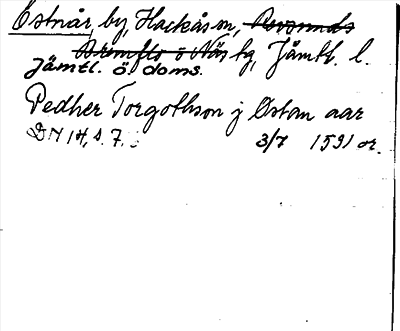 Östnår, by, Hackås sn, Revsunds
Brunflo o Näs tg, Jämtl. l.
Jämtl. ö. doms.
Pedher Torgothson j Østan aar
DN 14, s. 7. 3/7 1531 or.